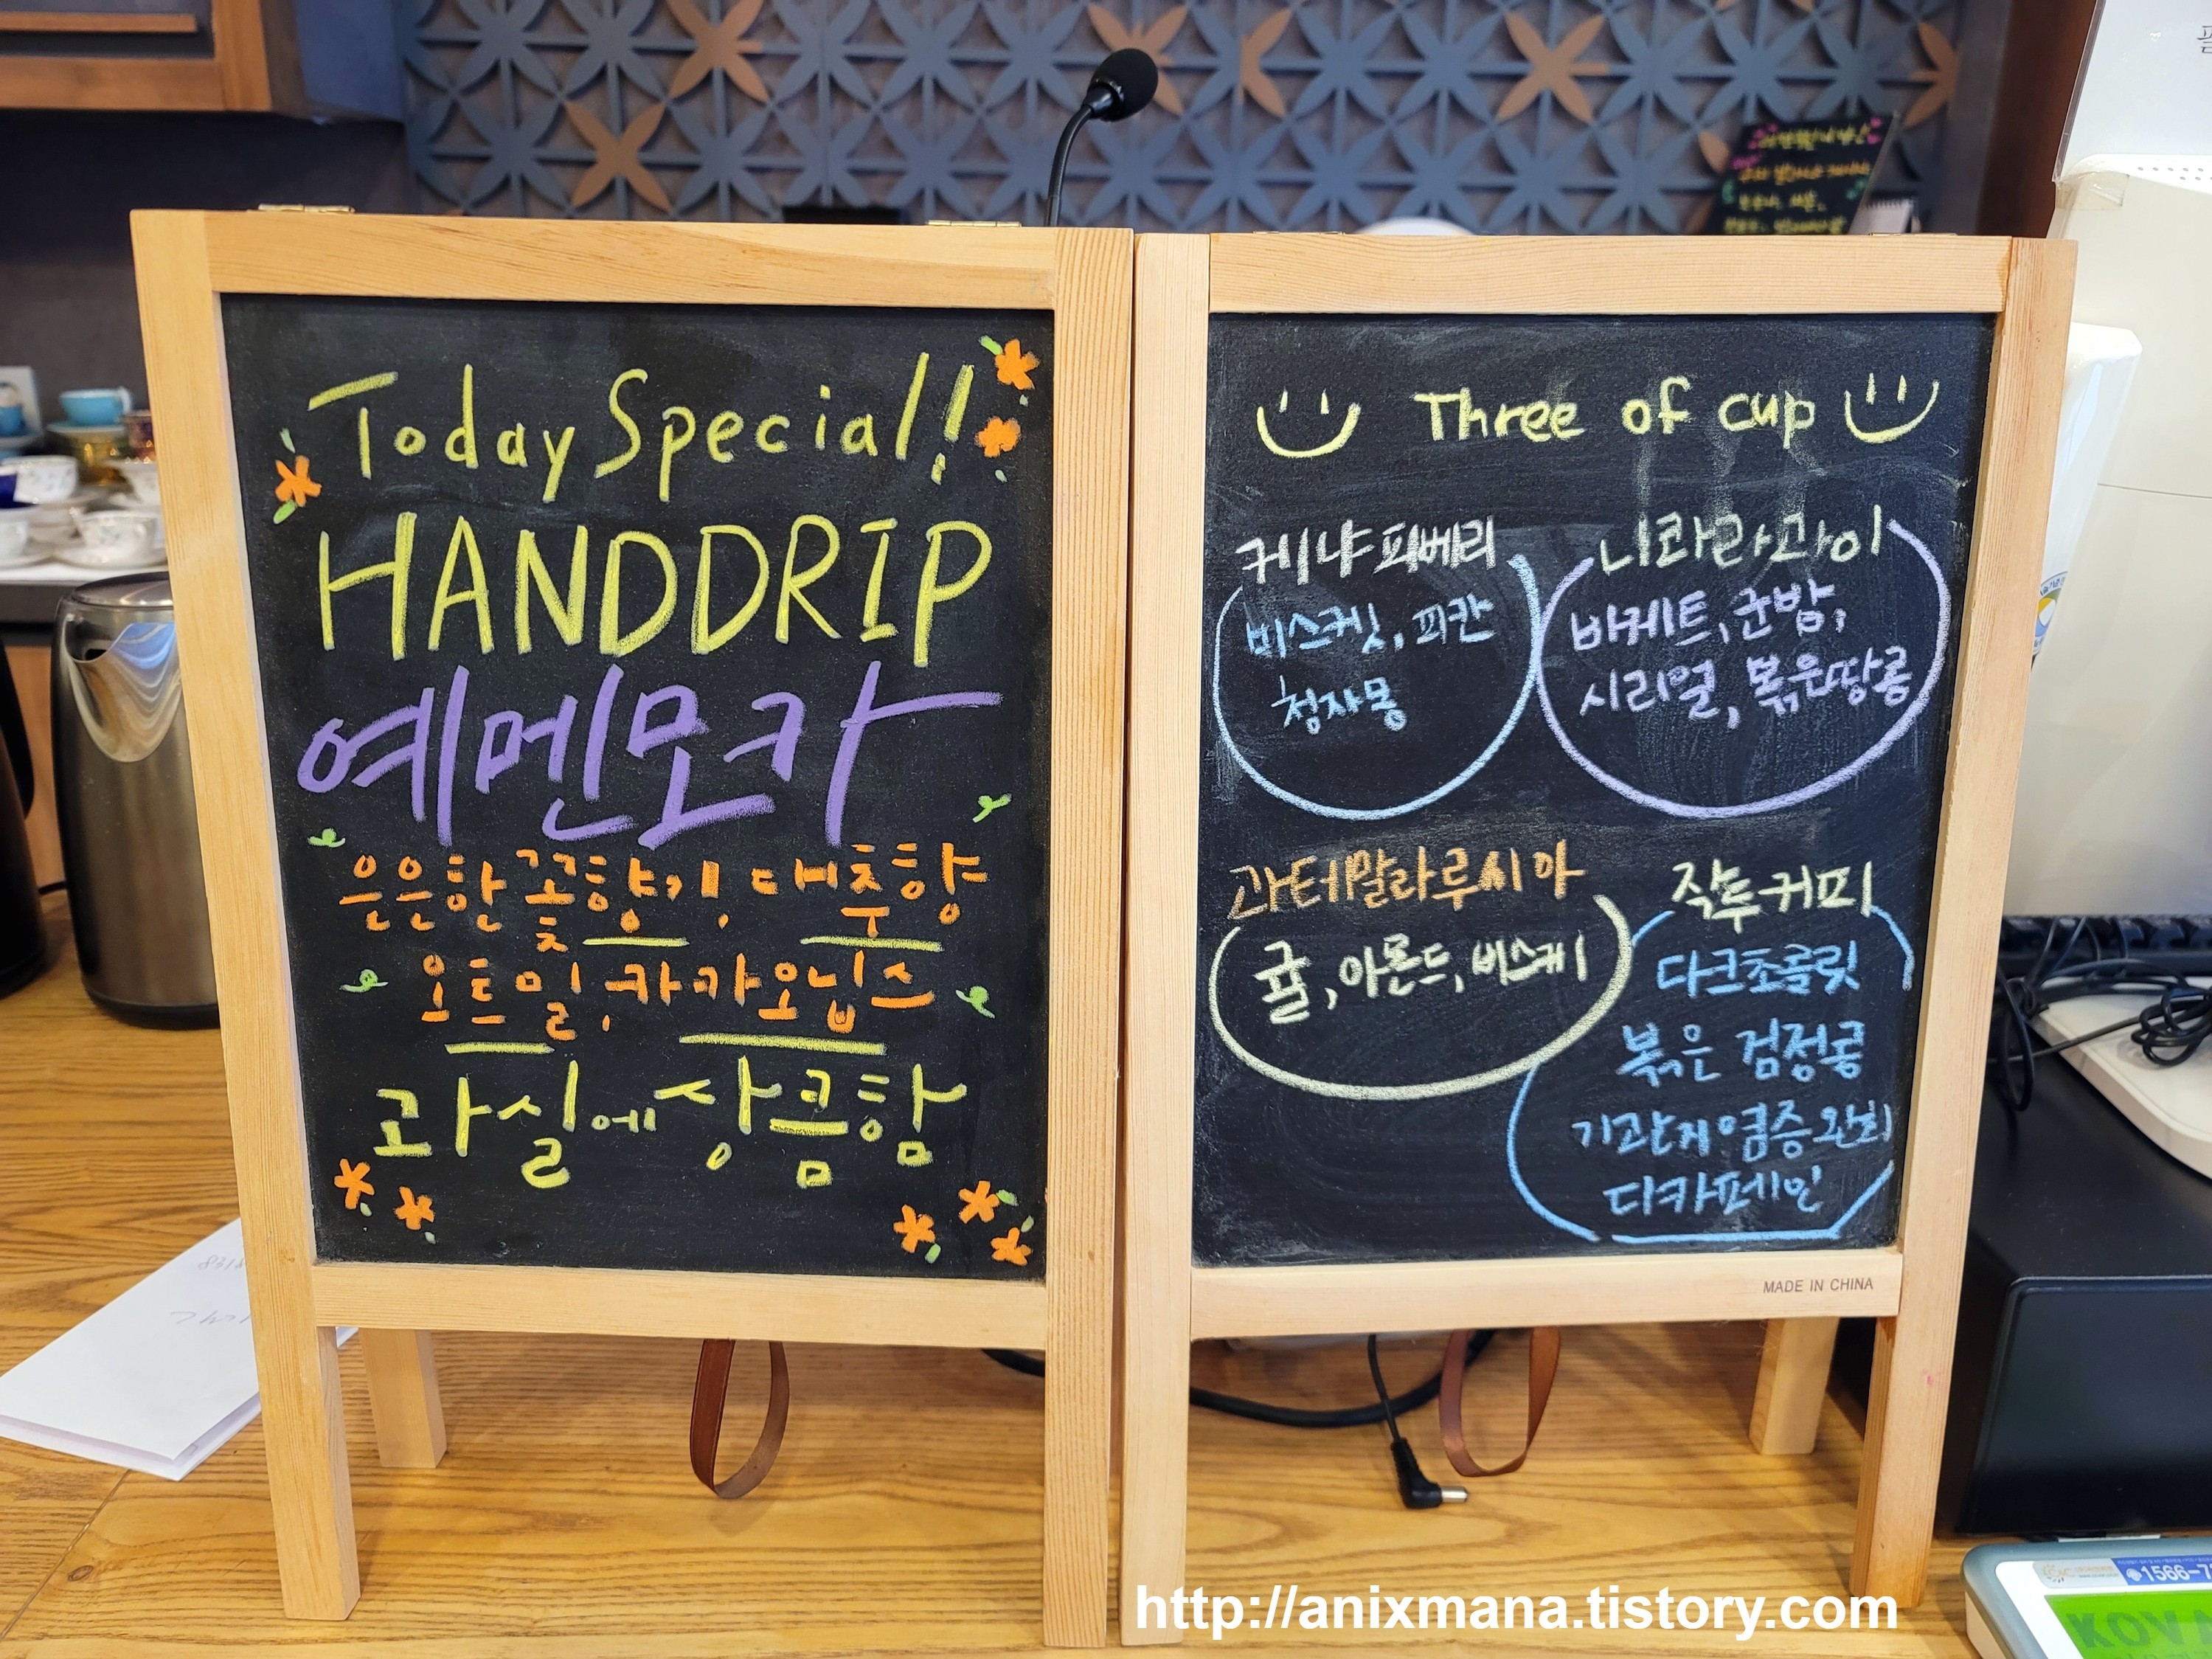 Today Special!
HANDDRIP
예멘모카
은은한 꽃향기, 대추향
오트밀, 카카오닙스
과실에 상큼함
Three of cup
케냐피베리
비스켓, 피칸
청자몽
니콰라과이
바케트, 군밤,
시리얼, 볶은땅콩
과테말라루시아
귤, 아몬드, 비스케
작두커피
다크초콜릿
볶은 검정콩
기관계염증완화
디카페인
MADE IN CHINA
1566-7
KOV
http://anixmana.tistory.com